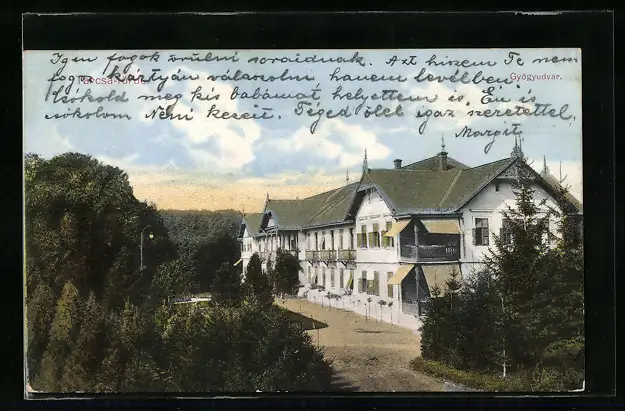 Igen fogok örülni soraidnak. Azt hiszem Te nem
fogsz kártyán válaszolni hanem levélben.
Tarcsa-fürdő
Gyógyudvar.
meg kis babámat helyettem is, Én is
csókolom Neni kezeit. Téged ölel igaz szeretettel,
Margit